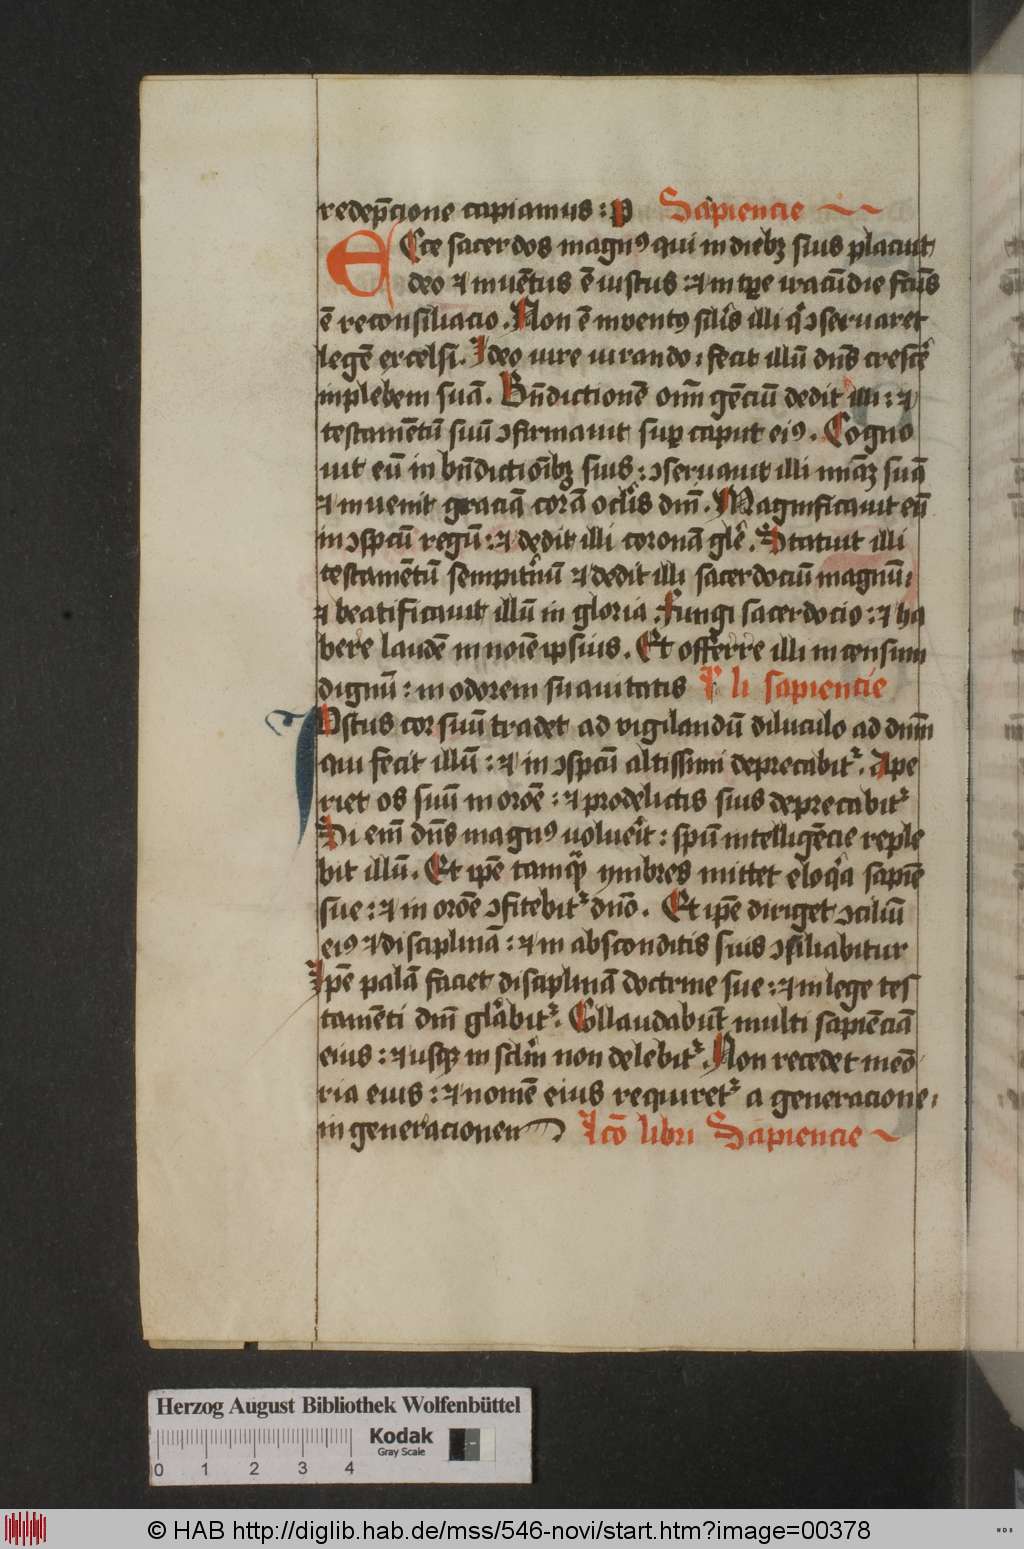 redep̄cione capiamus : p Sapiencie
Ecce sacerdos magnꝰ qui in diebꝫ suis placuit
deo ⁊ inuētus ē iustus : ⁊ in tp̄re iracūdie fcūs
ē reconsiliacio . Non ē inventꝰ sil̄is illi q̄ ↄseruaret
legē excelsi . Ideo iure iurando : fecit illū dn̄s crescē
in plebem suā . Bn̄dictionē omn̄ gēciū dedit illi : ⁊
testamētū suū ↄfirmauit sup caput eiꝰ . Cogno
uit eū in bn̄dictiōibꝫ suis : ↄseruauit illi mīaꝫ suā
⁊ inuenit graciā corā ocl̄is dm̄ . Magnificauit eū
in ↄspcū regū : ⁊ dedit illi coronā gl̄e . Statuit illi
testamētū sempit̄nū ⁊ dedit illi sacerdociū magnū :
⁊ beatificauit illū in gloria . Fungi sacerdocio : ⁊ ha
bere laudē in noīe ipsius . Et offerre illi incensum
dignū : in odorem suauitatis li sapiencie
Iustus cor suū tradet ad vigilandū diluculo ad dnm̄
qui fecit illū : ⁊ in ↄspcū altissimi deprecabit᷑ . Ape
riet os suū in orōe : ⁊ pro delictis suis deprecabit᷑
Si em̄ dn̄s magnꝰ uoluer̄it : spū intelligēcie reple
bit illū . Et ipē tamq̄ ymbres mittet eloq̄a sapiē
sue : ⁊ in orōe ↄfitebit᷑ dn̄o . Et ipē diriget ↄciliū
eiꝰ ⁊ disciplinā : ⁊ in absconditis suis ↄsiliabitur
Ipē palā faciet disciplinā doctrine sue : ⁊ in lege tes
tamēti dm̄ gl̄abit᷑ . Collaudabūt multi sapiēciā
eius : ⁊ usqꝫ in scl̄m non delebit᷑ . Non recedet meō
ria eius : ⁊ nomē eius requiret᷑ a generacione :
in generacionen Lcō libri Sapiencie
Herzog August Bibliothek Wolfenbüttel
Kodak
Gray Scale
0 1 2 3 4
© HAB http://diglib.hab.de/mss/546-novi/start.htm?image=00378